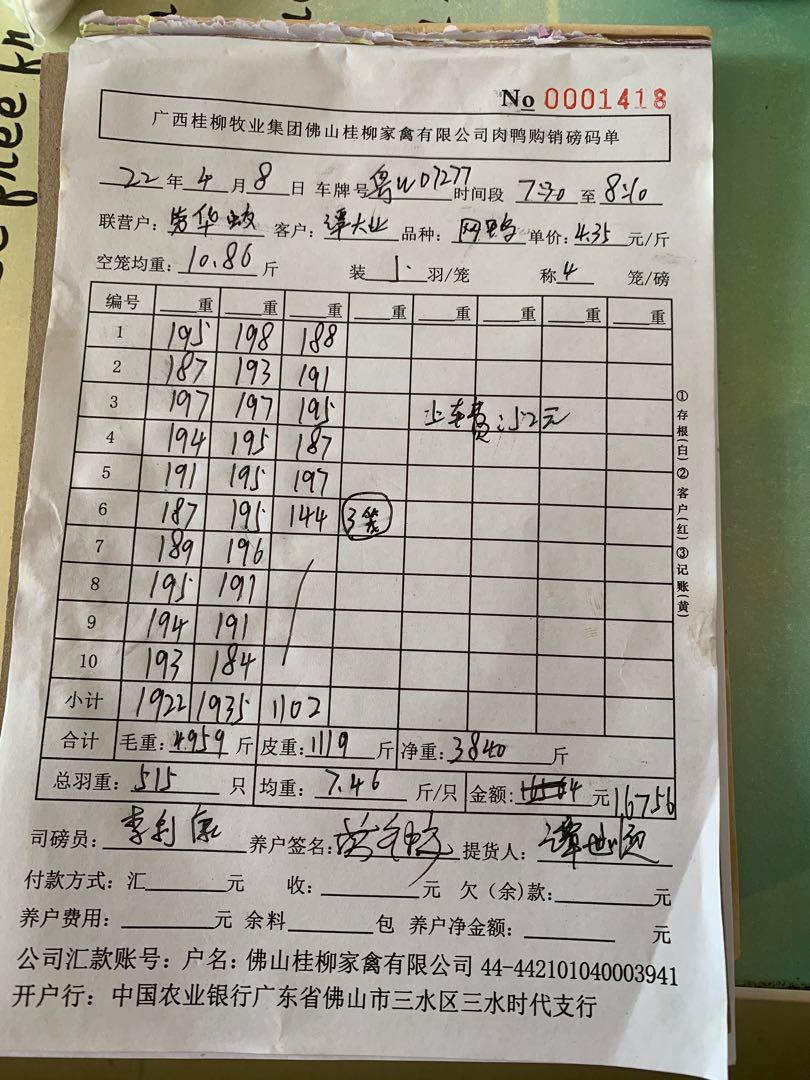 No 0001418
广西桂柳牧业集团佛山桂柳家禽有限公司肉鸭购销磅码单
22年4月8日 车牌号粤W07277时间段 7:30至8:10
联营户: 客户:谭大业 品种: 网鸭 单价:4.35元/斤
空笼均重:10.86斤 装5羽/笼 称4笼/磅
编号 重 重 重 重 重 重 重 重
1 195 198 188
2 187 193 191
3 197 197 195 上车费:52元
4 194 195 187
5 191 195 197
6 187 195 144 3笼
7 189 196
8 195 191
9 194 191
10 193 184
小计 1922 1935 1102
合计 毛重:4959斤 皮重:1119斤 净重:3840斤
总羽重:515只 均重:7.46斤/只 金额:元16756
司磅员:李利 养户签名: 提货人:谭
付款方式:汇 元 收: 元 欠(余)款: 元
养户费用: 元 余料 包 养户净金额: 元
公司汇款账号:户名:佛山桂柳家禽有限公司 44-442101040003941
开户行:中国农业银行广东省佛山市三水区三水时代支行
①存根(白)②客户(红)③记账(黄)
free